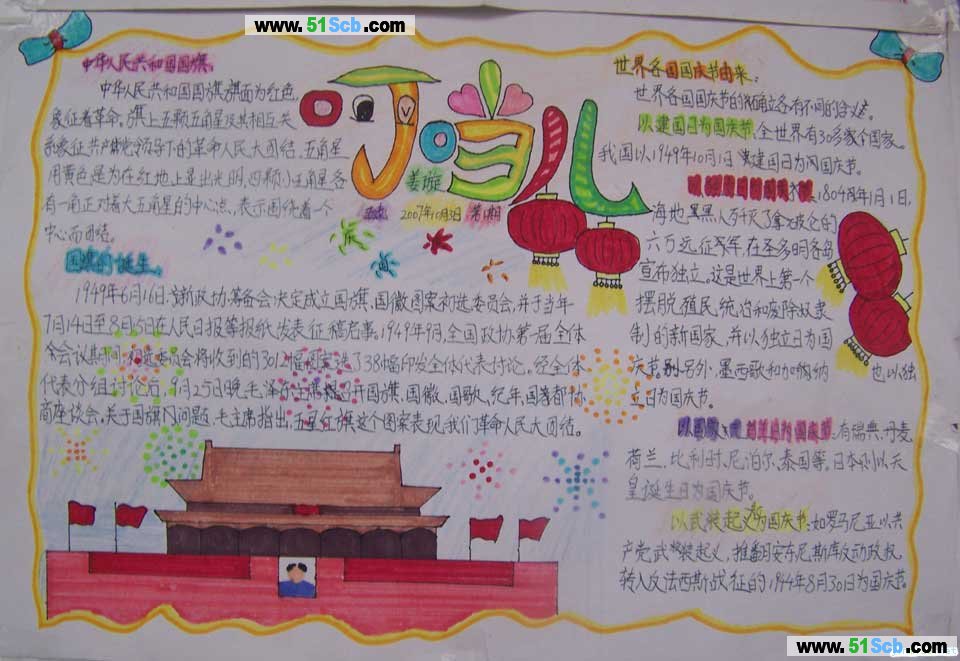 www.51Scb.com
中华人民共和国国旗:
中华人民共和国国旗旗面为红色,
象征着革命,旗上五颗五角星及其相互关
系象征共产党领导下的革命人民大团结。五角星
用黄色是为在红地上显出光明,四颗小五角星各
有一角正对着大五角星的中心点,表示围绕着一个
中心而团结。
国旗的诞生:
1949年6月16日,新政协筹备会决定成立国旗,国徽图案初选委员会,并于当年
7月14日至8月15日在人民日报等报纸发表征稿启事。1949年9月,全国政协第一届全体
会议期间,初选委员会将收到的3012幅图案选了38幅印发全体代表讨论。经全体
代表分组讨论后,9月25日晚,毛泽东主席召开国旗,国徽,国歌,纪年,国都协
商座谈会。关于国旗问题,毛主席指出,五星红旗这个图案表现我们革命人民大团结。
叮当儿
姜璇
2007年10月3日 第1期
世界各国国庆节由来:
世界各国国庆节的确立各有不同的含义。
以建国日为国庆节,全世界有30多家个国家。
我国以1949年10月1日 建国日为国庆节。
1804年1月1日,
海地黑人歼灭了拿破仑的
六万远征军,在圣多明各岛
宣布独立。这是世界上第一个
摆脱殖民统治和废除奴隶
制的新国家,并以独立日为国
庆节。另外,墨西哥和加纳 也以独
立日为国庆节。
有瑞典,丹麦,
荷兰,比利时,尼泊尔,泰国等,日本则以天
皇诞生日为国庆节。
以武装起义为国庆节:如罗马尼亚以共
产党武装起义,推翻安东尼斯库反动政权,
转入反法西斯战征的1944年8月30日为国庆节。
www.51Scb.com